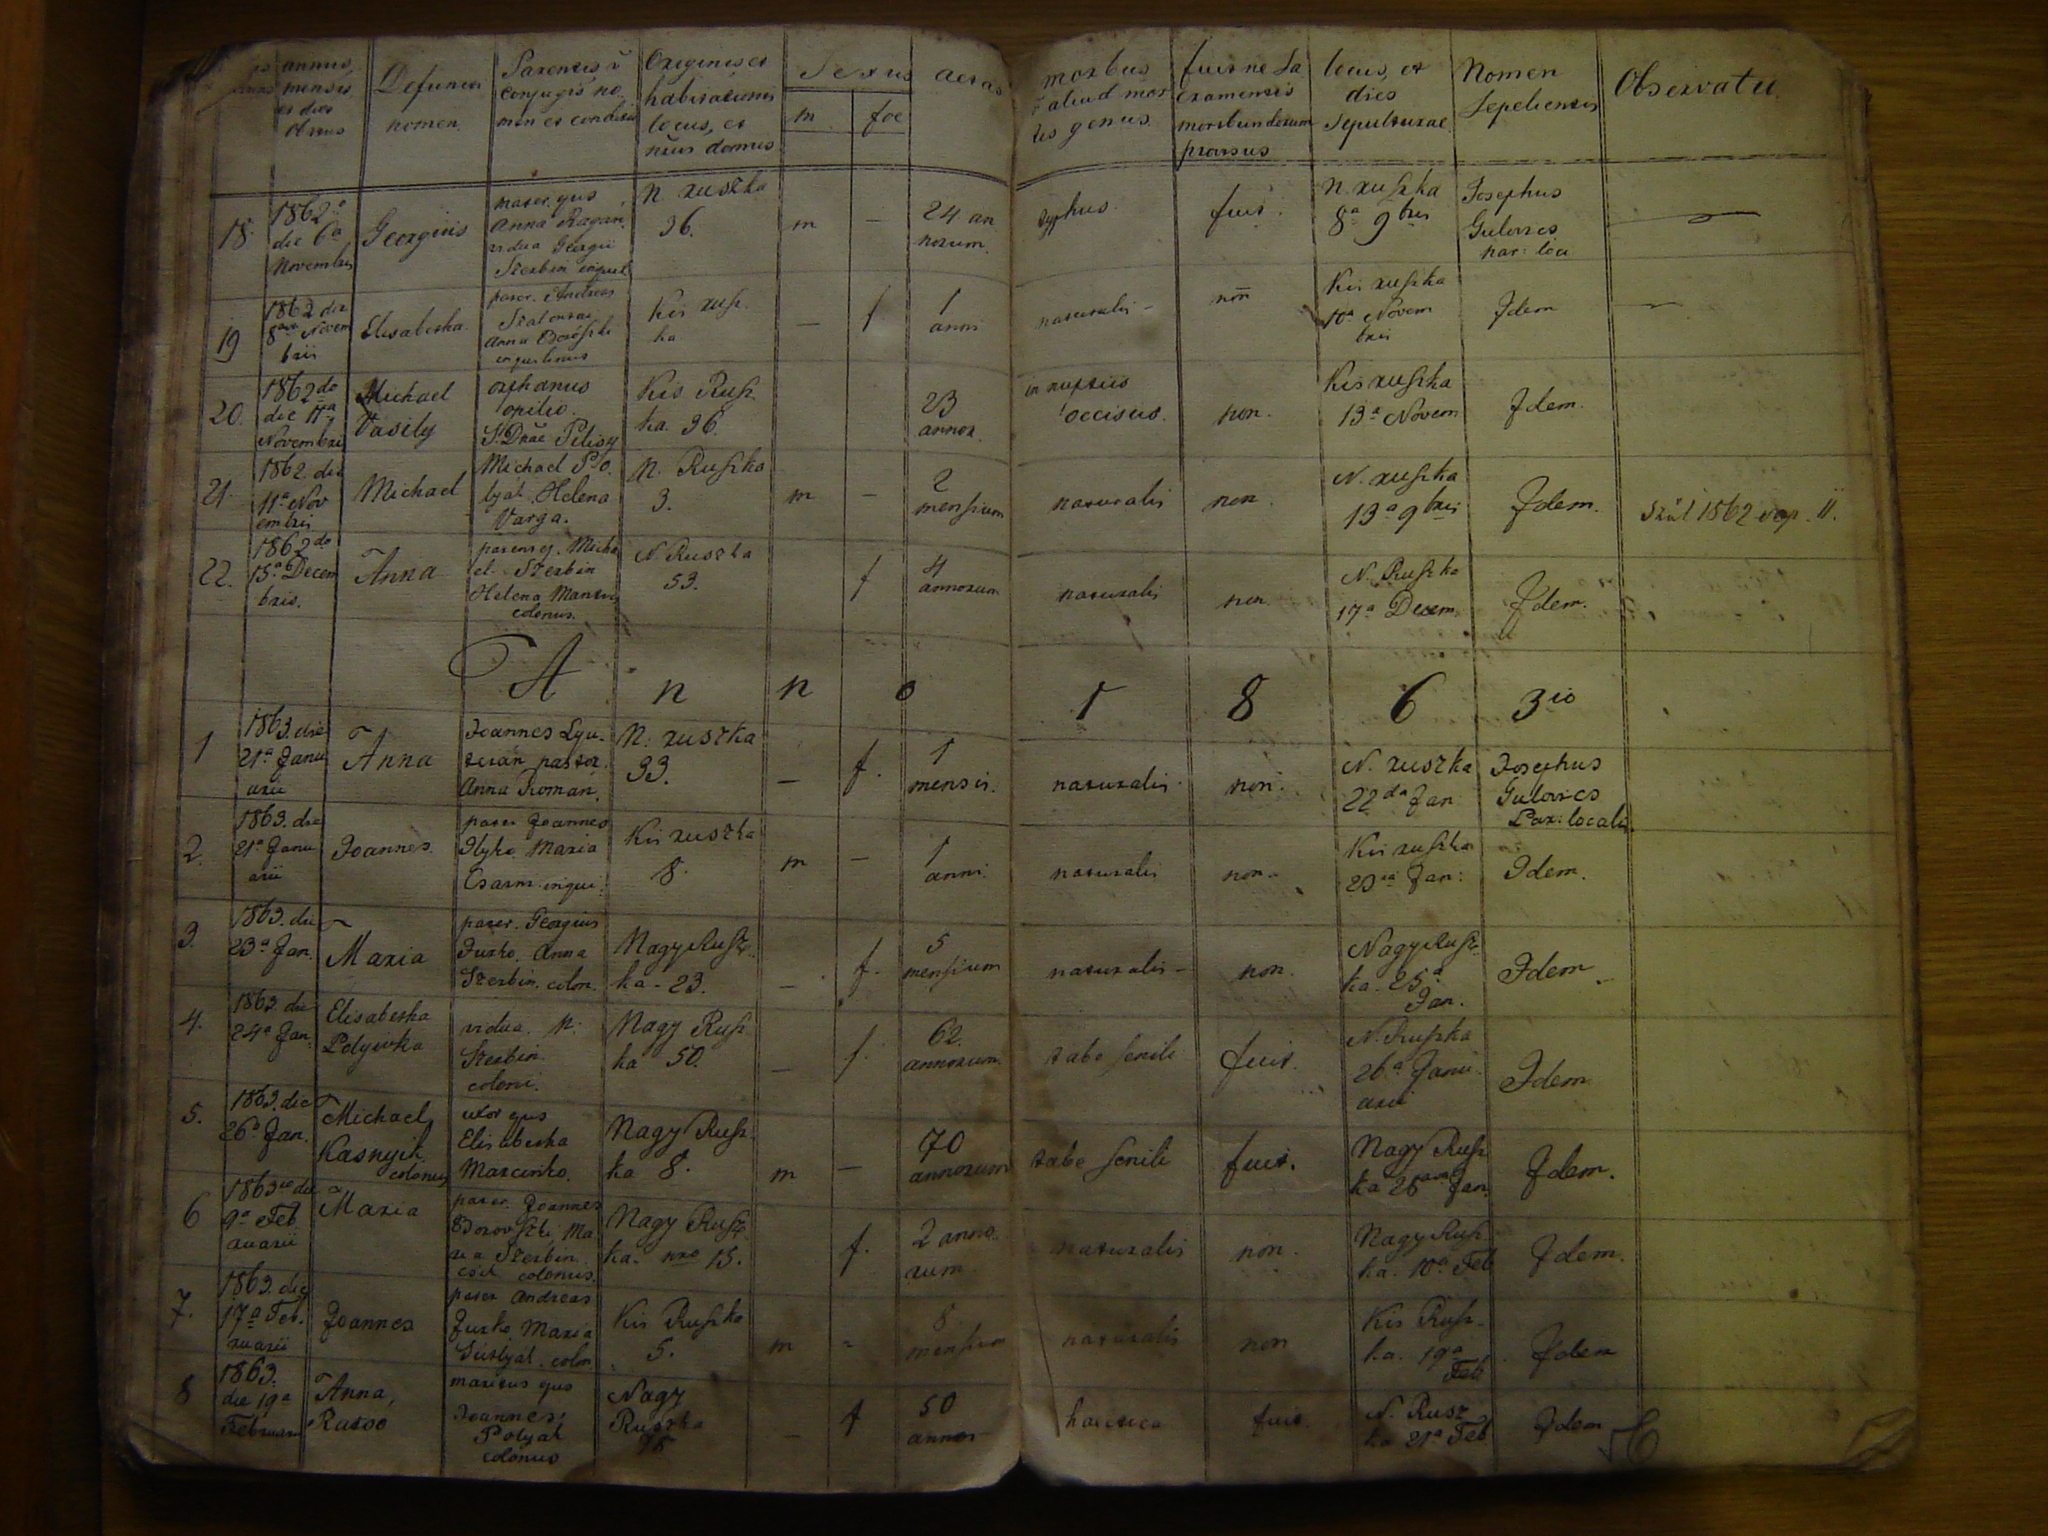 annus,
mensis
et dies
obitus
Defuncti
nomen.
Parentis, v̄
conjugis no-
men et conditio
Originis et
habitationis
locus, et
nr̄us domus
Sexus
m
foe
aetas
morbus
aliud mor
tis genus
fuit ne Sa
cramentis
moribundorum
locus, et
dies
Sepulturae
Nomen
Sepelientis
Observatio
18.
1862
die 6a
Novembris
Georgius
mater ejus
vidua Georgii
Szerbin
N. ruszka
36.
m
-
24 an
norum
typhus
fuit
N. ruszka
8a 9bris
Josephus
Gulovics
par: loci
19
1862 die
Novem
bris
Elisabetha
pater Andreas
Anna
inquilinus
Kis rusz
ka
-
f
1
anni
naturalis -
non
Kis ruszka
10a Novem
bris
Idem
20.
1862do
die 11a
Novembris
Michael
Vasily
orphanus
opilio
Kis Rusz
ka 36.
23
annor.
occisus.
non.
Kis ruszka
13a Novem
Idem.
21.
1862. die
11a Nov
embris
Michael
Michael Po
lyak Helena
Varga.
N. Ruszka
3.
m
-
2
mensium
naturalis
non.
N. ruszka
13a 9bris
Idem.
Szül 1862 11.
22.
1862do
15a Decem
bris.
Anna
parens ej. Micha
el Szerbin
Helena
colonus.
N Ruszka
53.
f
4
annorum
naturalis
non
N. Ruszka
17a Decem
Idem.
A n n o 1 8 6 3io
1
1863. die
21a Janu
arii
Anna
Joannes
pastor.
Anna Roman.
N. ruszka
33.
-
f.
1
mensis.
naturalis.
non.
N. ruszka
22da Jan
Josephus
Gulovics
Par: localis.
2.
1863. die
21a Janu
arii
Joannes.
pater Joannes
Ilyko Maria
inqui:
Kis ruszka
8.
m
-
1
anni.
naturalis
non.
Kis ruszka
23ia Jan:
Idem.
3.
1863. die
23a Jan.
Maria
pater. Georgius
Jurko. Anna
Szerbin. colon.
Nagy Rusz
ka - 23.
-
f.
5
mensium
naturalis -
non.
Nagy Rusz
ka. 25a
Jan.
Idem
4.
1863 die
24a Jan:
Elisabetha
Polyivka
vidua. N:
Szerbin
coloni.
Nagy Rusz
ka 50.
-
f.
62.
annorum.
tabe senili
fuit.
N. Ruszka
26a Janu
arii
Idem
5.
1863. die
26a Jan.
Michael
Kasnyik
colonus
uxor ejus
Elisabetha
Marcinko.
Nagy Rusz
ka 8.
m
-
70
annorum
tabe senili
fuit.
Nagy Rusz
ka 28 Jan.
Idem.
6
1863io die
9a Feb
ruarii
Maria
pater. Joannes
Ma
ria Szerbin
colonus.
Nagy Rusz
ka. nro 15.
f.
2 anno
rum
naturalis
non.
Nagy Rusz
ka. 10a Feb
Idem.
7.
1863. die
17a Feb.
ruarii
Joannes
pater Andreas
Jurko Maria
colon
Kis Ruszka
5.
m
-
8.
mensium
naturalis
non
Kis Rusz
ka. 19a
Feb
Idem
8
1863.
die 19a
Februarii
Anna,
maritus ejus
Joannes
Polyak
colonus
Nagy
Ruszka
-
f
50
annor
hectica
fuit
N. Rusz
ka 21a Feb
Idem